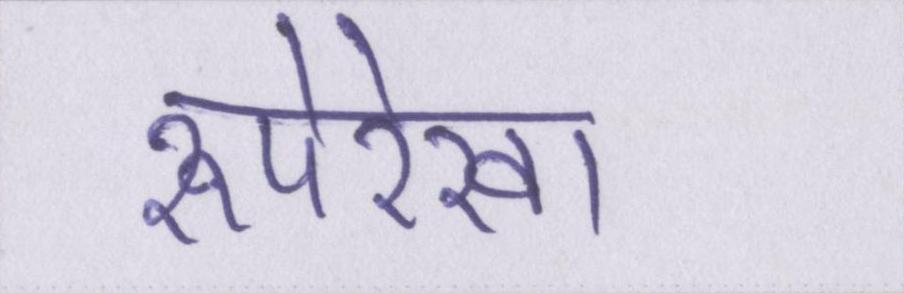 रूपेरेखा